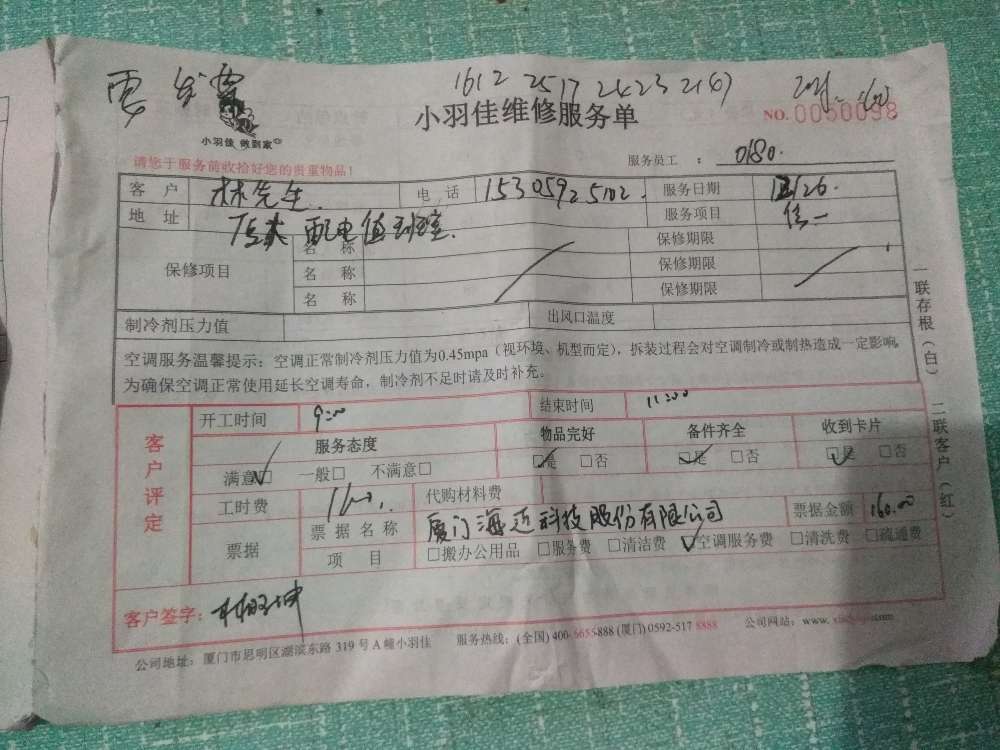 1612 2517 2423 2167
小羽佳 做到家
小羽佳维修服务单
NO. 0050098
请您于服务前收拾好您的贵重物品!
服务员工 : 0180.
客户 林先生. 电话 15305925102. 服务日期 12/26.
地址 配电值班室. 服务项目
保修项目 名称 保修期限
名称 保修期限
名称 保修期限
制冷剂压力值 出风口温度
空调服务温馨提示:空调正常制冷剂压力值为0.45mpa(视环境、机型而定),拆装过程会对空调制冷或制热造成一定影响,
为确保空调正常使用延长空调寿命,制冷剂不足时请及时补充。
客户评定
开工时间 9:00 结束时间 11:00
服务态度 物品完好 备件齐全 收到卡片
满意□ 一般□ 不满意□ □是 □否 □是 □否 □是 □否
工时费 代购材料费
票据 票据名称 厦门海迈科技股份有限公司 票据金额 160.00
项目 □搬办公用品 □服务费 □清洁费 □空调服务费 □清洗费 □疏通费
客户签字:
公司地址:厦门市思明区湖滨东路 319 号 A 幢小羽佳 服务热线:(全国) 400-6655888 (厦门) 0592-517 8888 公司网站:www.
一联存根(白) 二联客户(红)